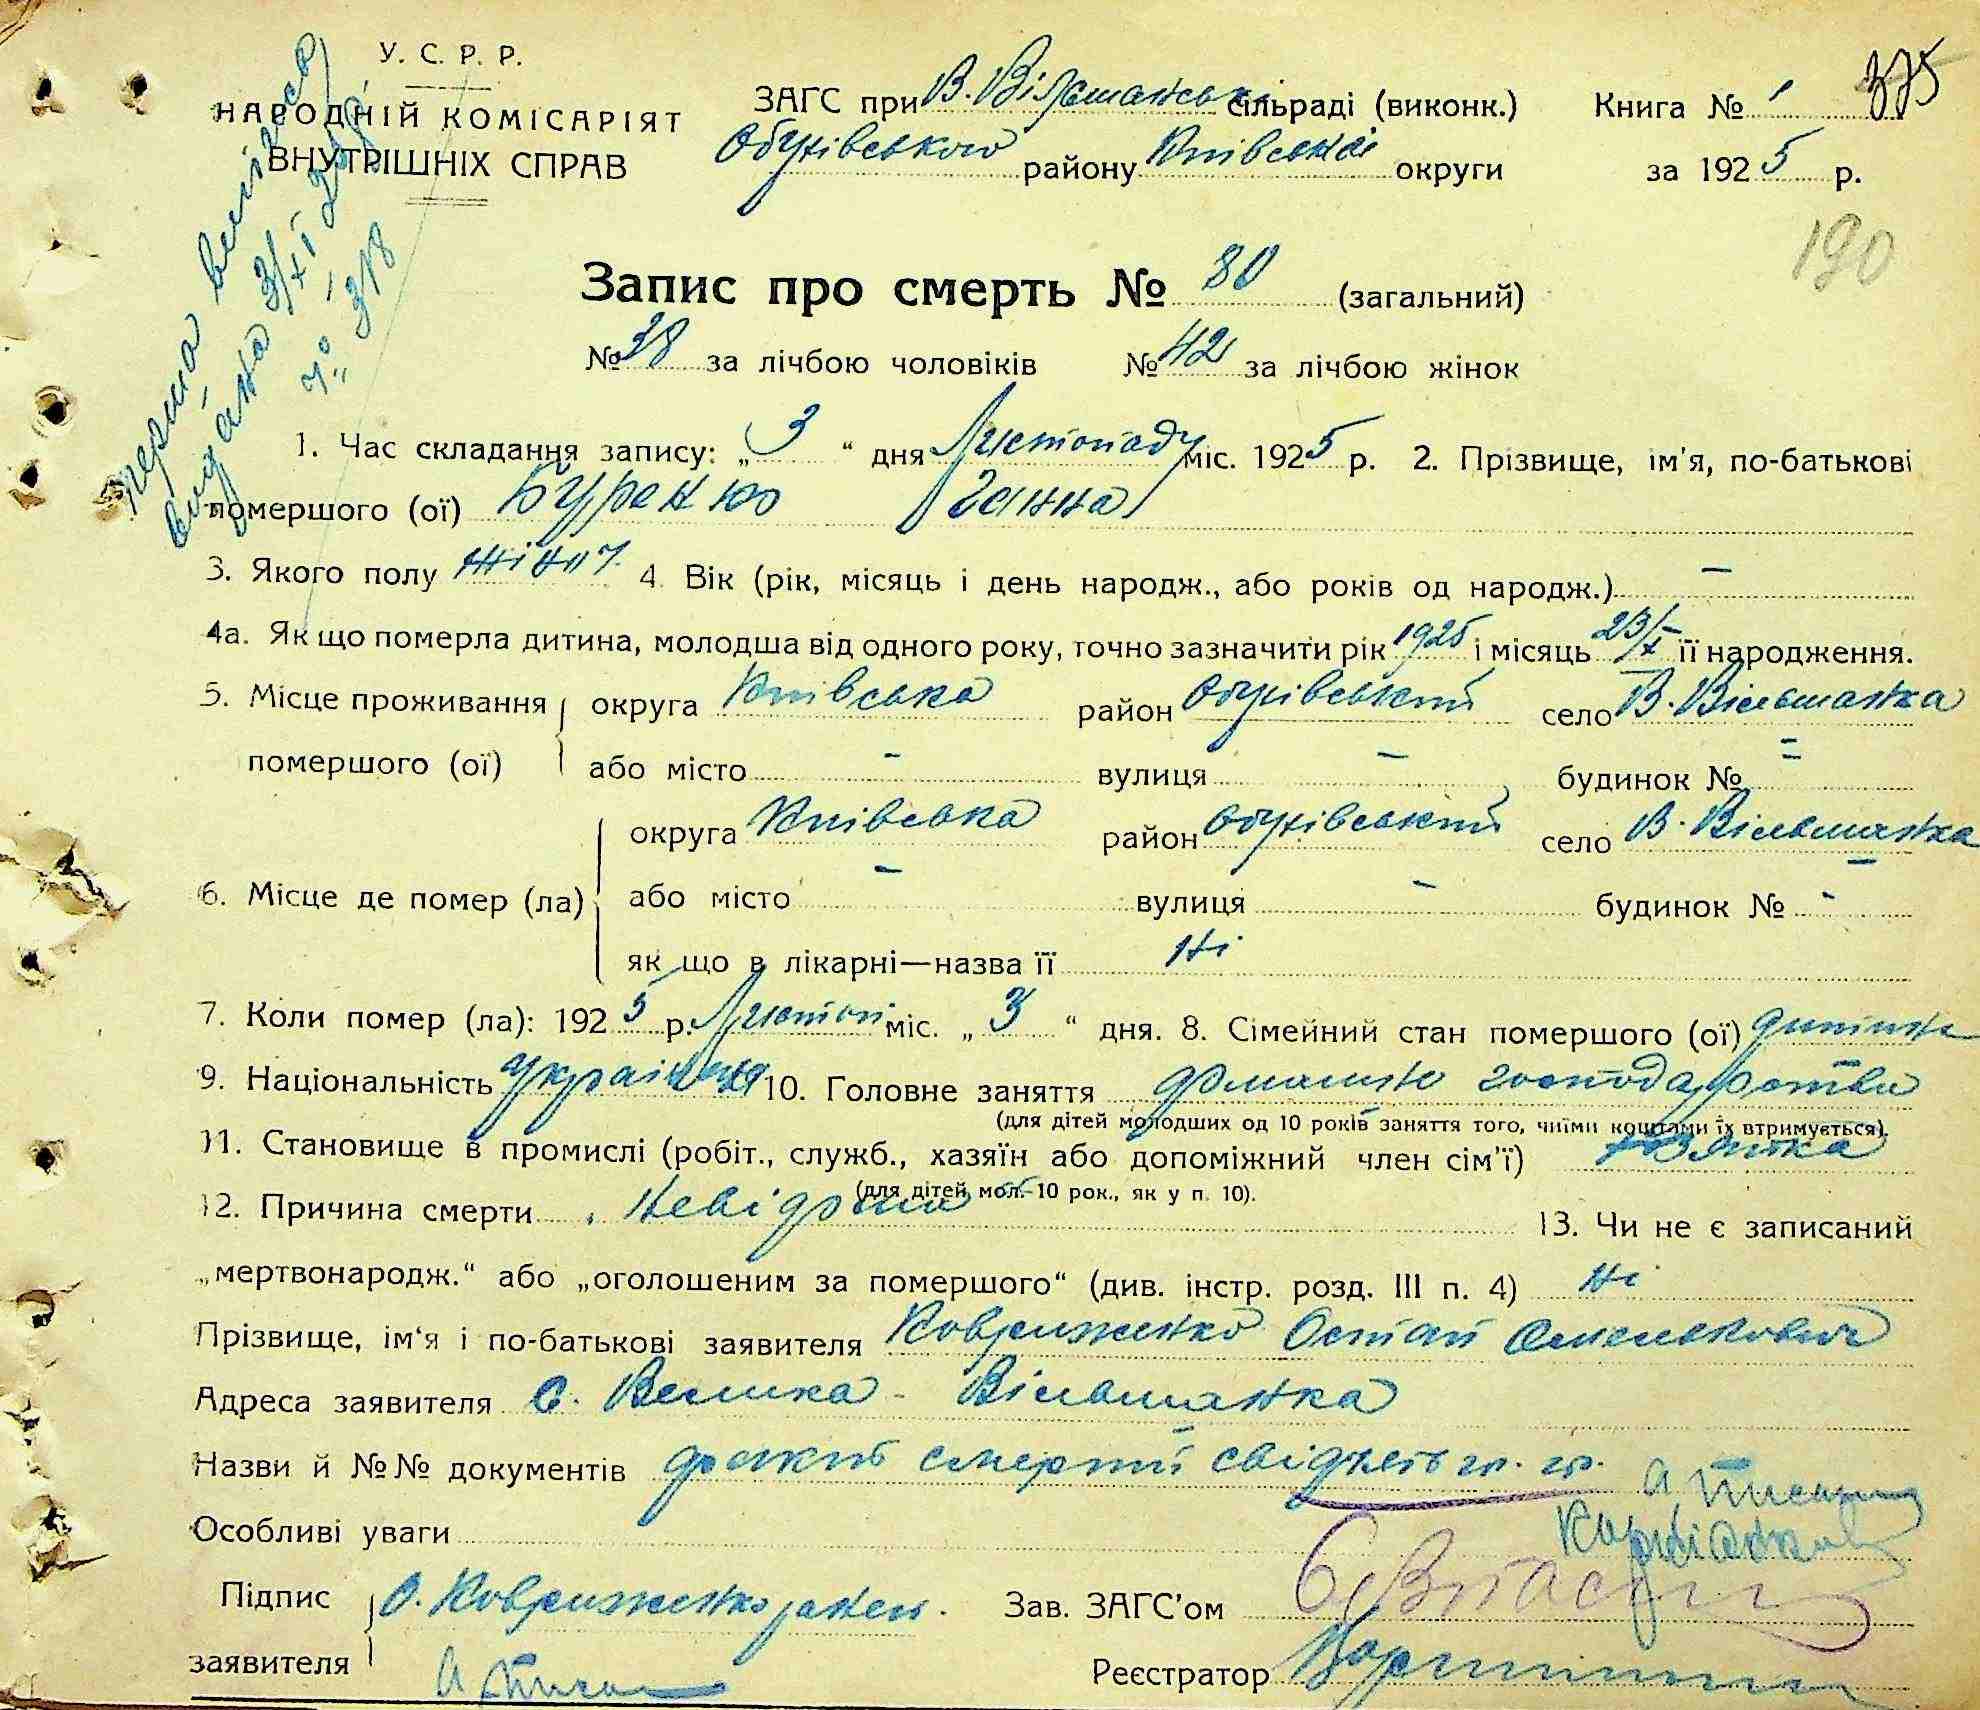 У. С. Р. Р.
НАРОДНІЙ КОМІСАРІЯТ
ВНУТРІШНІХ СПРАВ
ЗАГС при В. Вільшанській сільраді (виконк.) Книга № 1 375
Обухівського району Київської округи за 1925 р.
190
перша виписка
видана 3/XI 25 р.
№ 318
Запис про смерть № 80 (загальний)
№ 38 за лічбою чоловіків № 42 за лічбою жінок
1. Час складання запису: „3“ дня Листопаду міс. 1925 р. 2. Прізвище, ім'я, по-батькові
помершого (ої) Ганна
3. Якого полу жіноч. 4. Вік (рік, місяць і день народж., або років од народж.) —
4а. Як що померла дитина, молодша від одного року, точно зазначити рік 1925 і місяць 23/X її народження.
5. Місце проживання округа Київська район Обухівський село В. Вільшанка
помершого (ої) або місто — вулиця — будинок № —
округа Київська район Обухівський село В. Вільшанка
6. Місце де помер (ла) або місто — вулиця — будинок № -
як що в лікарні—назва її Ні
7. Коли помер (ла): 1925 р. Листоп міс. „3“ дня. 8. Сімейний стан помершого (ої) дитина
9. Національність українка 10. Головне заняття домашнє господарство
(для дітей молодших од 10 років заняття того, чиїми коштами їх втримується).
11. Становище в промислі (робіт., служб., хазяїн або допоміжний член сім'ї)
(для дітей мол. 10 рок., як у п. 10).
12. Причина смерти невідома 13. Чи не є записаний
„мертвонародж.“ або „оголошеним за помершого“ (див. інстр. розд. III п. 4) Ні
Прізвище, ім'я і по-батькові заявителя Ковриженко Остап Омелькович
Адреса заявителя с. Велика - Вільшанка
Назви й №№ документів факт смерти свідчать гр. гр.
Особливі уваги
Підпис О. Ковриженко
заявителя
Зав. ЗАГС'ом
Реєстратор